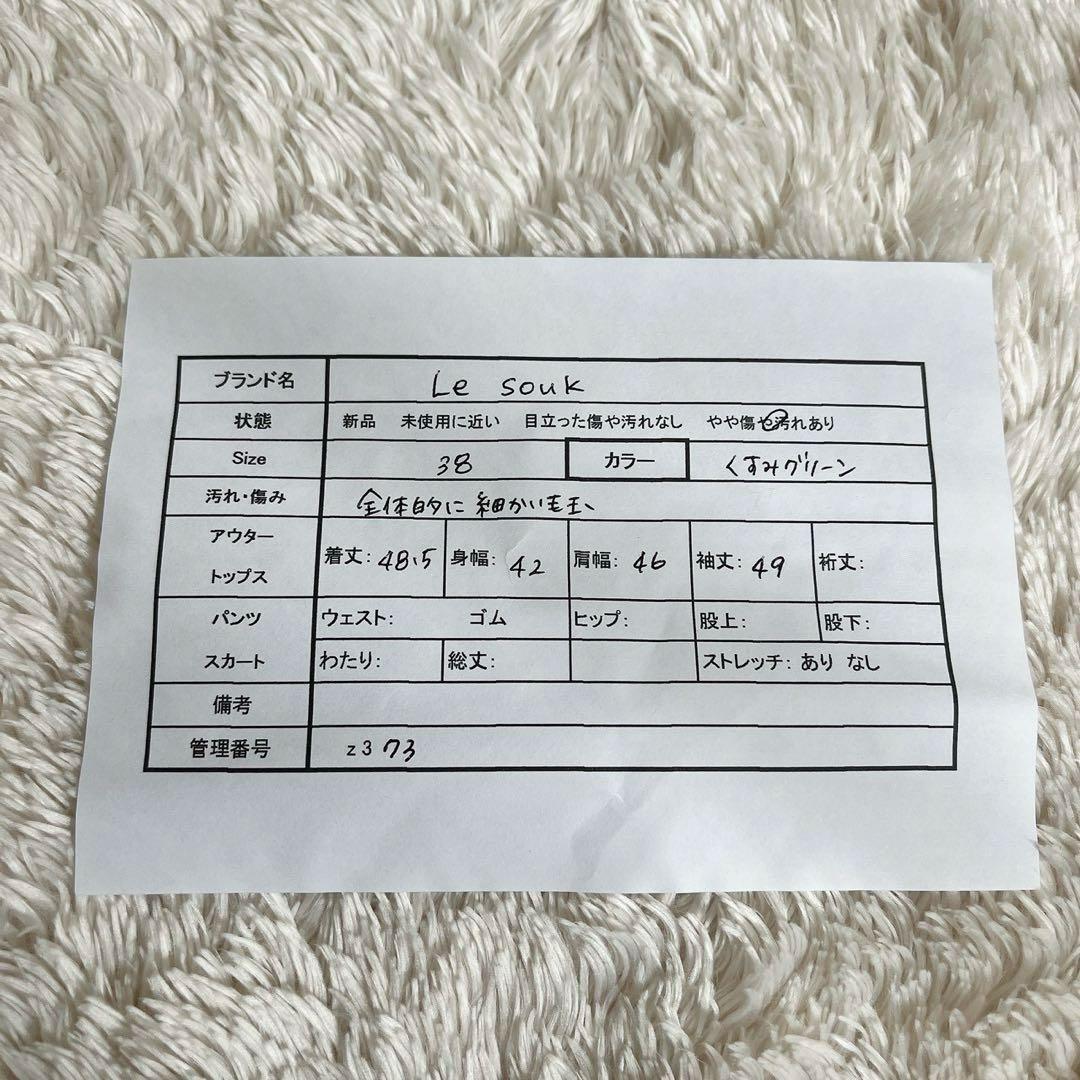 ブランド名 Le souk
状態 新品 未使用に近い 目立った傷や汚れなし やや傷や汚れあり
Size 38 カラー くすみグリーン
汚れ・傷み 全体的に細かい毛玉、
アウター
トップス 着丈: 48.5 身幅: 42 肩幅: 46 袖丈: 49 裄丈:
パンツ ウェスト: ゴム ヒップ: 股上: 股下:
スカート わたり: 総丈: ストレッチ: あり なし
備考
管理番号 z373